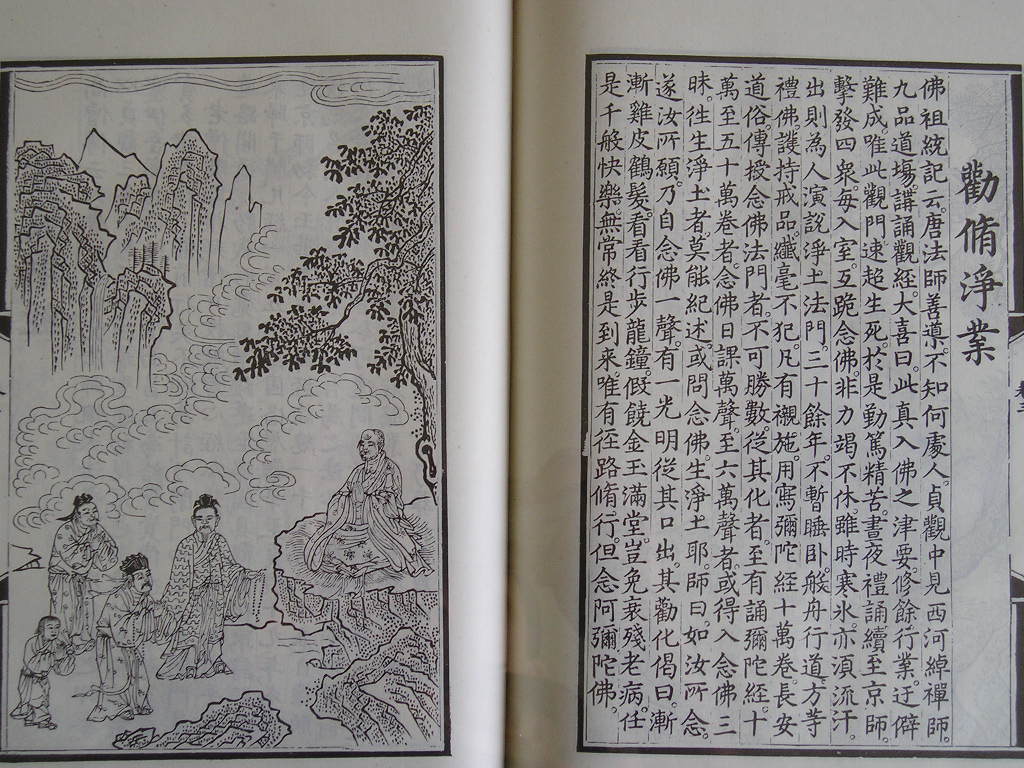 勸脩淨業
佛祖統記云。唐法師善導。不知何處人。貞觀中見西河綽禪師。
九品道場講誦觀經。大喜曰。此真入佛之津要。修餘行業迂僻
難成。唯此觀門速超生死。於是勤篤精苦。晝夜禮誦。續至京師。
擊發四衆。每入室互跪念佛。非力竭不休。雖時寒氷。亦湏流汗。
出則為人演說淨土法門。三十餘年不暫睡卧。般舟行道。方等
禮佛。護持戒品。纖毫不犯。凡有襯施。用寫彌陀經十萬卷。長安
道俗傳授念佛法門者。不可勝數。從其化者。至有誦彌陀經十
萬至五十萬卷者。念佛日課萬聲。至六萬聲者。或得入念佛三
昧。往生淨土者。莫能紀述。或問念佛生淨土耶。師曰。如汝所念。
遂汝所願。乃自念佛一聲。有一光明從其口出。其勸化偈曰。漸
漸雞皮鶴髮。看看行步龍鐘。假饒金玉滿堂。豈免衰殘老病。任
是千般快樂。無常終是到來。唯有徑路脩行。但念阿彌陀佛。